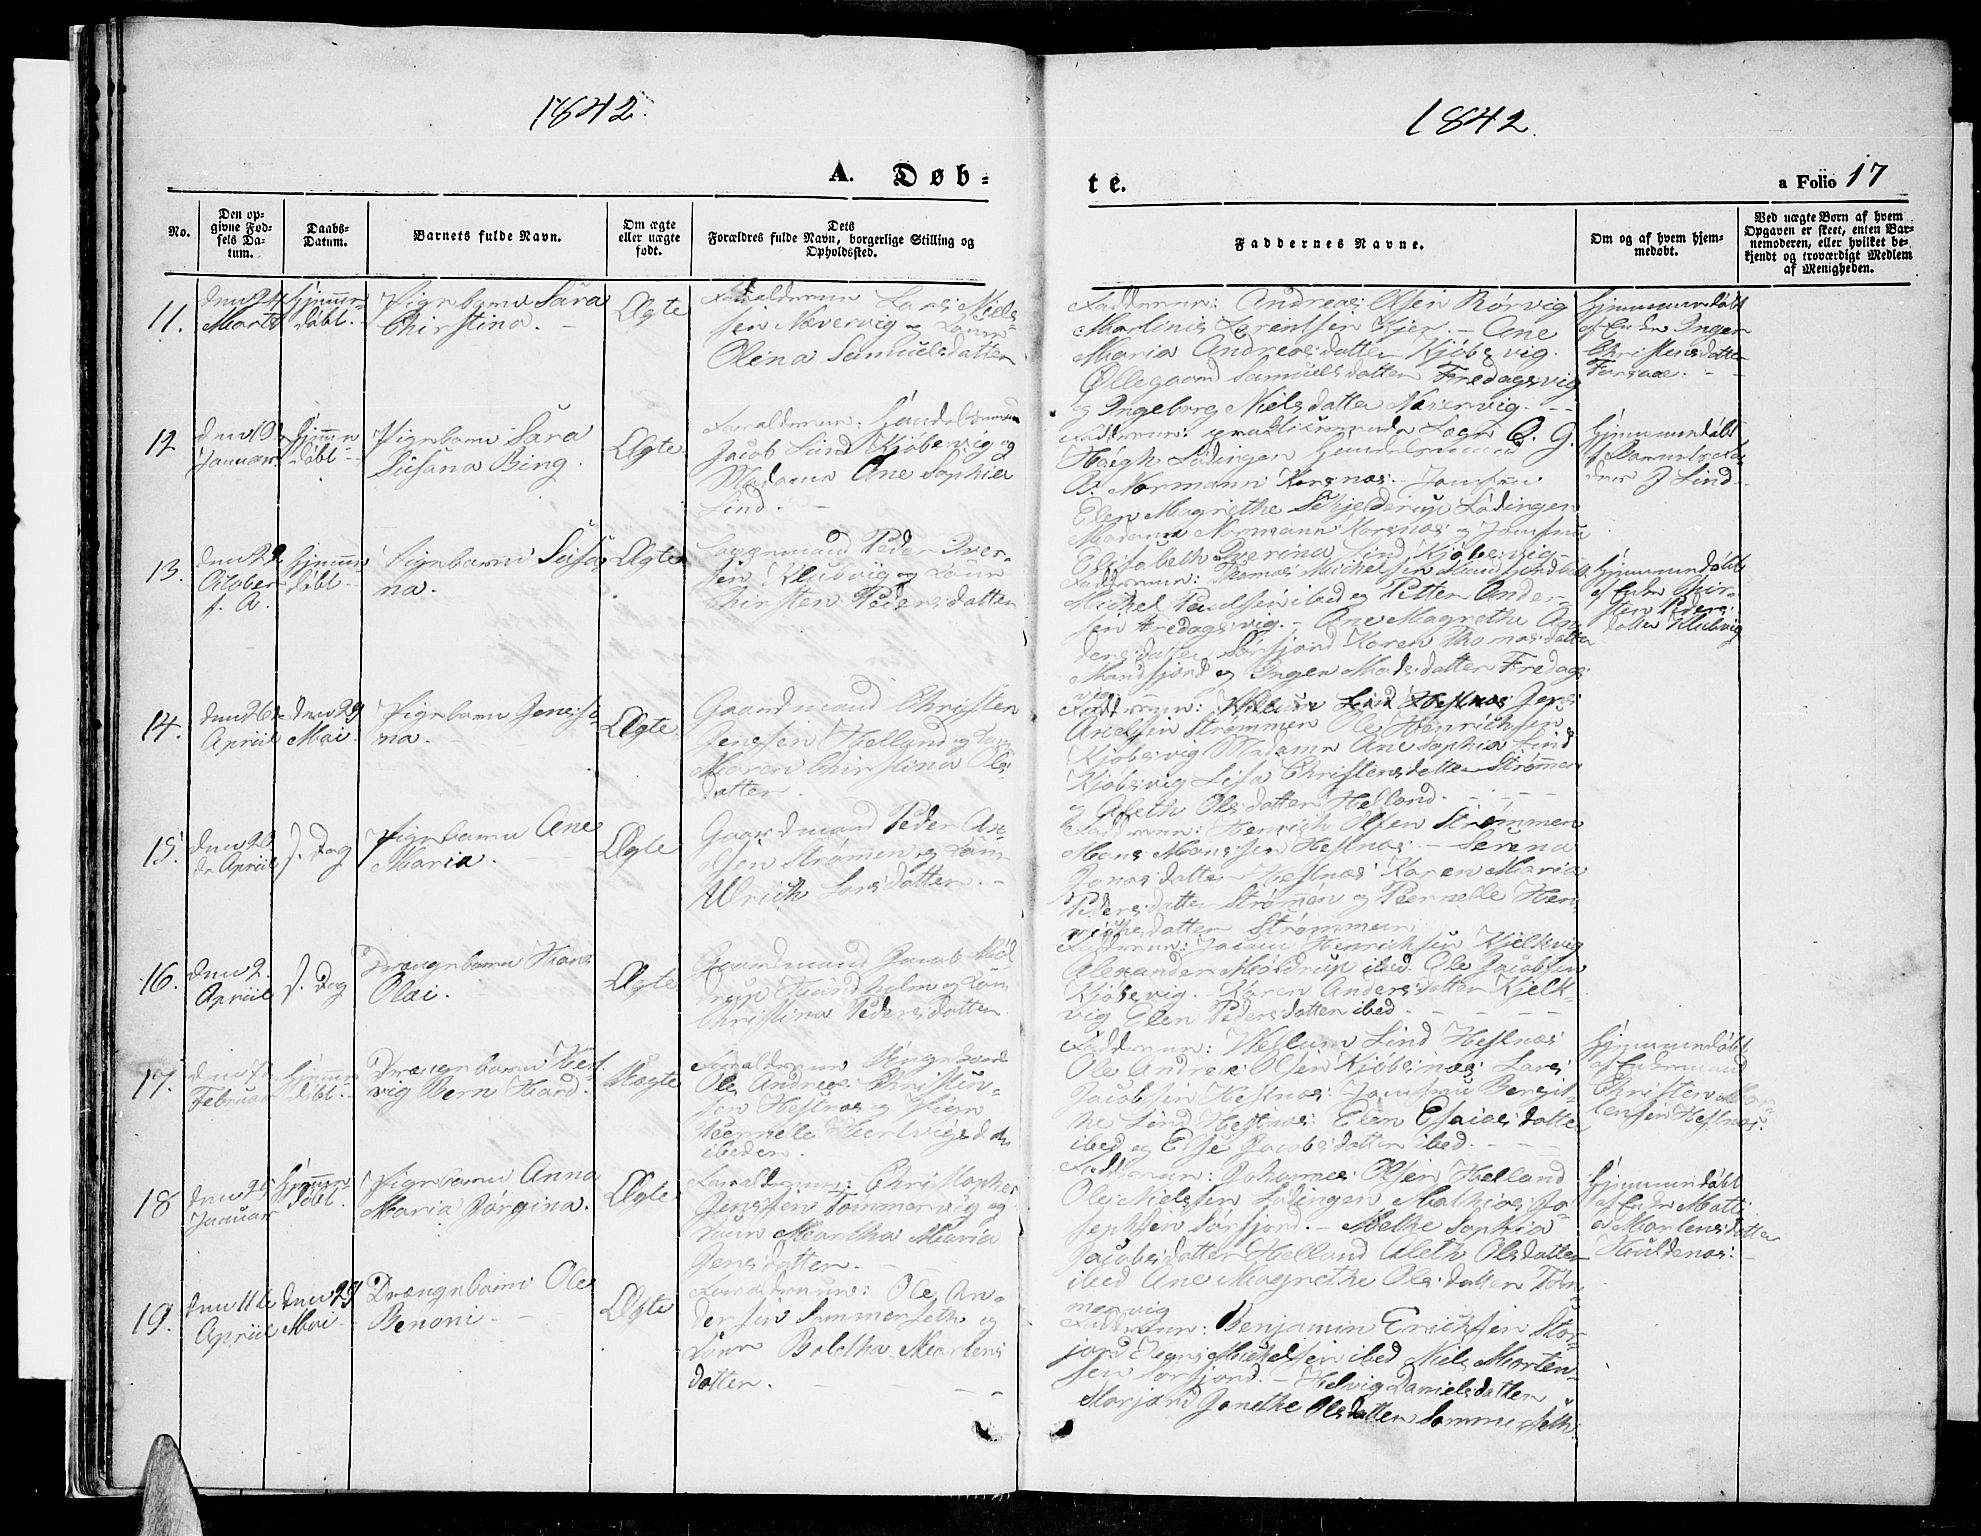 1842.
1842.
A. Døb-
te.
a Folio 17
No.
Den op-
givne Fød-
sels Da-
tum.
Daabs-
Datum.
Barnets fulde Navn.
Om ægte
eller uægte
født.
Dets
Forældres fulde Navn, borgerlige Stilling og
Opholdssted.
Faddernes Navne.
Om og af hvem hjem-
medøbt.
Ved uægte Børn af hvem
Opgaven er skeet, enten Bar-
nemoderen, eller hvilket be-
kjendt og troværdigt Medlem
af Menigheden.
11.
Marts
døbt.
Pigebarn Sara
Christina.
Ægte
Forældrene Lars Niels-
sen Nævervig og Kone
Olina Samuelsdatter
Fadderne: Andreas Olsen Rørvig
Martinis Lorentsen Kjer. - Ane
Maria Andreasdatter Kjøbsvig.
Øllegaard Samuelsdatter Fredagsvig
og Ingeborg Nielsdatter Nævervig.
Hjemmedøbt
af Enke Inger
Christensdatter
12
den 19
Januar
Hjemme
døbt
Pigebarn Sara
Susana Bing.
Ægte
Forældrene: Handelsmand
Jacob Lind Kjøbsvig og
Madame Ane Sophia
Lind.
Fadderne: practiserende Læge O. G.
Høigh Lødingen Handelsmand
Normann Korsnæs. Jomfrue
Elen Magrethe Schjelderup Lødingen
Madame Normann Korsnæs og Jomfrue
Elisabeth Iverina Lind Kjøbsvig
Hjemmedøbt
J Lind
13.
den 29
October
f. A.
Hjemme
døbt
Pigebarn Susa
na.
Ægte
Peder Iver-
sen Klubvig og Kone
Chirsten Pedersdatter
Fadderne: Thomas Michelsen
Michel Paulsen ibid og Petter Ander-
sen Fredagsvig. - Ane Magrethe An
dersdatter Sørfjord Karen Thomasdatter
Mandfjord og Inger Madsdatter Fredags
vig
Hjemmedøbt
af Enke Chir-
sten Peders-
datter Klubvig
14.
den 26
April
den 29
Mai
Pigebarn Jensi
na.
Ægte
Gaardmand Christen
Jensen Helland og Kone
Maren Chirstina Ols
datter.
Fadderne: Lind Hestnæs Jens
Axelsen Strømmen Ole Henrichsen
Kjøbsvig Madame Ane Sophia Lind
Kjøbsvig Lisa Christensdatter Strømmen
og Aleth Olsdatter Helland.
15.
April
s. Dag
Pigebarn Ane
Maria.
Ægte
Gaardmand Peder Ax-
sen Strømen og Kone
Ulrich Larsdatter.
Fadderne: Henrich Olsen Strømmen
Mons Monssen Hestnæs. - Serena
Jonasdatter Hestnæs Karen Maria
Pedersdatter Strømen og Pernelle Hen
richsdatter Strømmen
16.
den 2.
April
s. Dag
Drængebarn Hans
Olai.
Ægte
Gaardmand Jacob Møl
drup Sandholm og Kone
Christina Pedersdatter.
Fadderne: Henrichsen Kjelkvig
Alexander Møldrup ibid. Ole Jacobsen
Kjøbsvig. - Karen Andersdatter Kjelk-
vig Elen Pedersdatter ibed.
17.
Februar
Hjemme
døbt
Drængebarn Hert
vig Bern Hard.
Uægte
Forældrene Ungkarl
Ole Andreas Christen-
sen Hestnæs og Pigen
Pernele Hertvigsdatter
ibeden.
Fadderne: Wellum Lind Hestnæs
Ole Andreas Olsen Kjøbsnæs Lars
Jacobsen Hestnæs Jomfrue Bergit-
he Lind Hestnæs Elen Esaiasdatter
ibed og Else Jacobsdatter ibed.
Hjemmedøbt
af Enkemand
Christen Mor-
tensen Hestnæs.
18
den 25
Januar
Hjemme
døbt.
Pigebarn Anna
Maria Jørgina.
Ægte
Forældrene: Christopher
Jenssen Tommervig og
Kone Martha Maria
Jensdatter.
Fadderne: Johannes Olsen Helland
Ole Nielssen Lødingen Mathias Jo-
sephsen Sørfjord. - Methe Sophia
Jacobsdatter Helland Aleth Olsdatter
ibed Ane Magrethe Olsdatter Tøm-
mervig
Hjemmedøbt
af Enke
Mortensdatter
19.
den 11te
April
den 29
Mai
Drængebarn Ole
Benoni
Ægte
Forældrene: Ole An-
dersen Sommerseth og
Kone Boletha Mortens
datter.
Fadderne: Benjamin Erichsen Stor-
jord Jens Michelsen ibed Niels Morten-
sen Sørfjord. - Helvig Danielsdatter
Storjord Janethe Olsdatter Sommerseth.